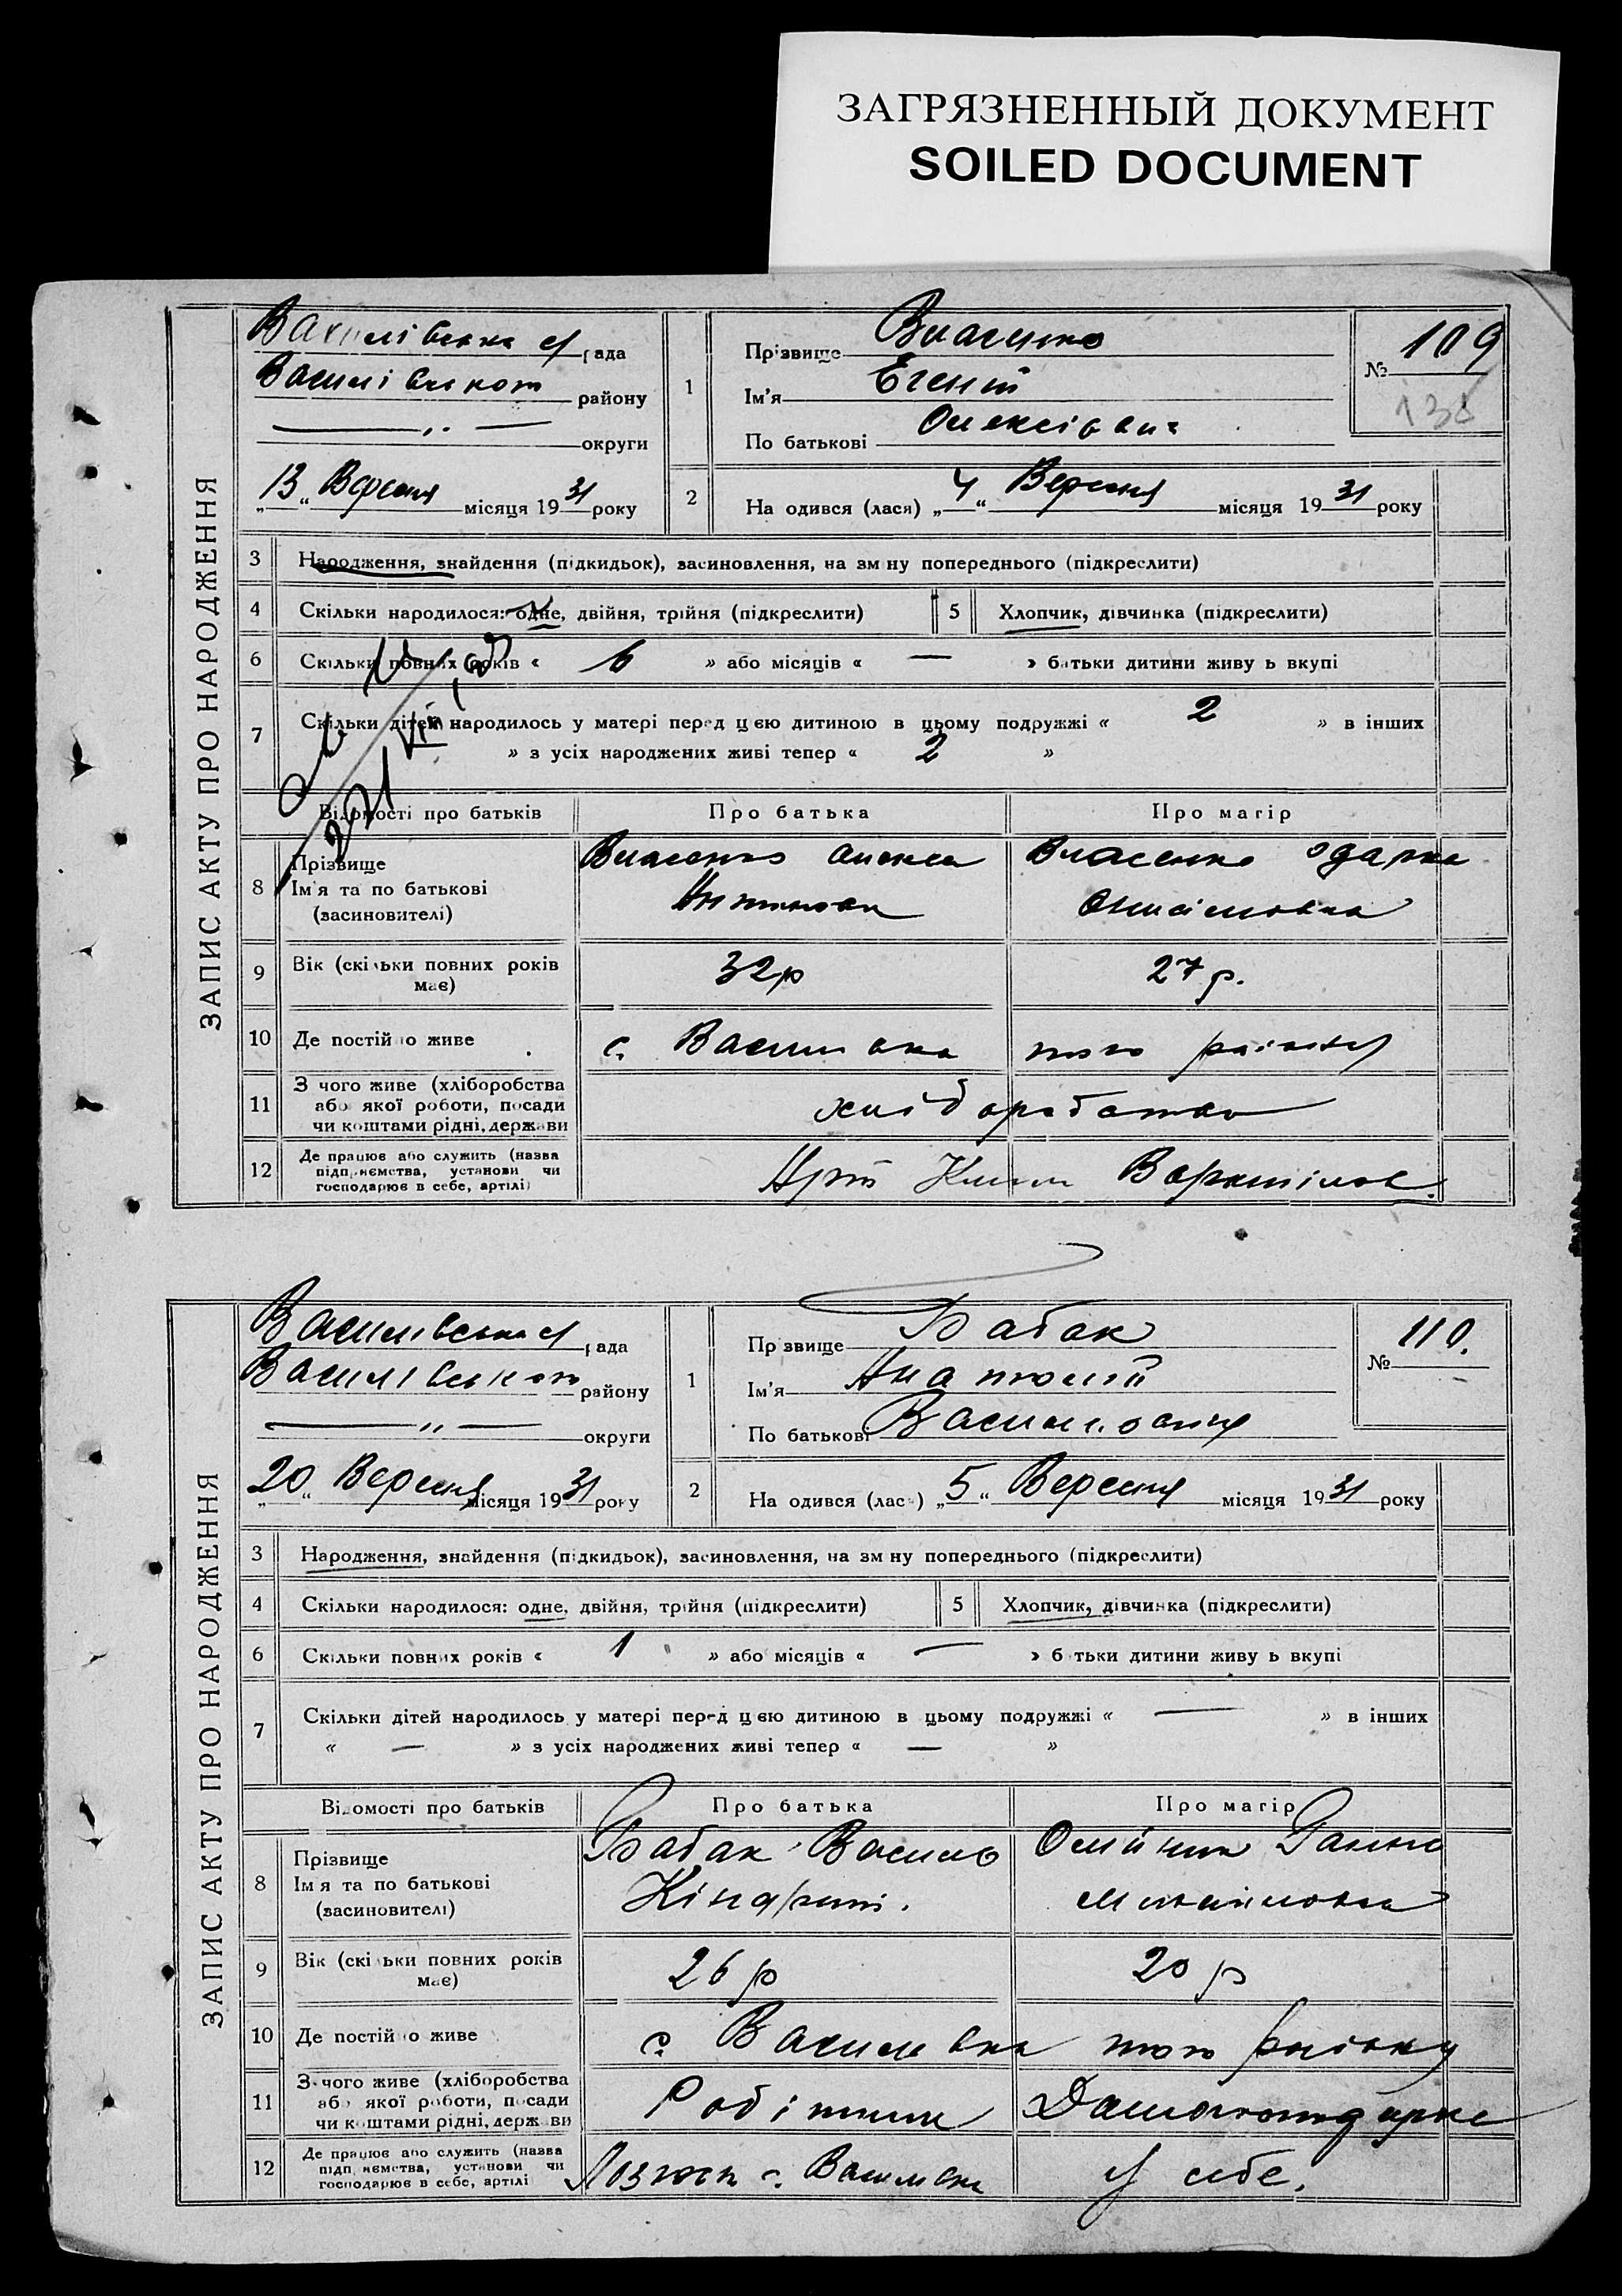 ЗАГРЯЗНЕННЫЙ ДОКУМЕНТ
SOILED DOCUMENT
ЗАПИС АКТУ ПРО НАРОДЖЕННЯ
Василівська с/рада
Василівського району
—„— округи
„13“ Вересня місяця 1931 року
1
Прізвище Власенко
Ім'я Євгеній
По батькові Олексієвич
№ 109
138
2
На одився (лася) „4“ Вересня місяця 1931 року
3 Народження, знайдення (підкидьок), засиновлення, на зм ну попереднього (підкреслити)
4 Скільки народилося: одне, двійня, трійня (підкреслити)
5 Хлопчик, дівчинка (підкреслити)
6 Скільки повних років « 6 » або місяців « — » батьки дитини живу ь вкупі
7 Скільки дітей народилось у матері перед цією дитиною в цьому подружжі « 2 » в інших
» з усіх народжених живі тепер « 2 »
Відомості про батьків Про батька Про матір
8 Прізвище
Ім'я та по батькові
(засиновителі)
Власенко Олекса
Власенко Одарка
Онисімовна
9 Вік (скільки повних років
має)
32р
27р.
10 Де постій о живе
с. Василівка того району
11 З чого живе (хліборобства
або якої роботи, посади
чи коштами рідні, держави
хліборобство
12 Де працює або служить (назва
підприємства, установи чи
господарює в себе, артілі)
Арт Клим Ворошилов.
ЗАПИС АКТУ ПРО НАРОДЖЕННЯ
Василівська с/рада
Василівського району
—„— округи
„20“ Вересня місяця 1931 року
1
Пр звище Бабак
Ім'я Анатолій
По батькові Васильович
№ 110.
2
На одився (лас ) „5“ Вересня місяця 1931 року
3 Народження, знайдення (підкидьок), засиновлення, на зм ну попереднього (підкреслити)
4 Скільки народилося: одне, двійня, трійня (підкреслити)
5 Хлопчик, дівчинка (підкреслити)
6 Скільки повних років « 1 » або місяців « — » б тьки дитини живу ь вкупі
7 Скільки дітей народилось у матері перед цією дитиною в цьому подружжі « — » в інших
« — » з усіх народжених живі тепер « — »
Відомості про батьків Про батька Про матір
8 Прізвище
Ім я та по батькові
(засиновителі)
Бабак Василь
Кіндрат.
Олійник Ганна
9 Вік (скі ьки повних років
має)
26 р
20 р
10 Де постій о живе
с. Василівка того району
11 З чого живе (хліборобства
або якої роботи, посади
чи коштами рідні, держави
Робітник
Домогосподарка
12 Де працює або служить (назва
підприємства, установи чи
господарює в себе, артілі
с. Василівка
у себе.